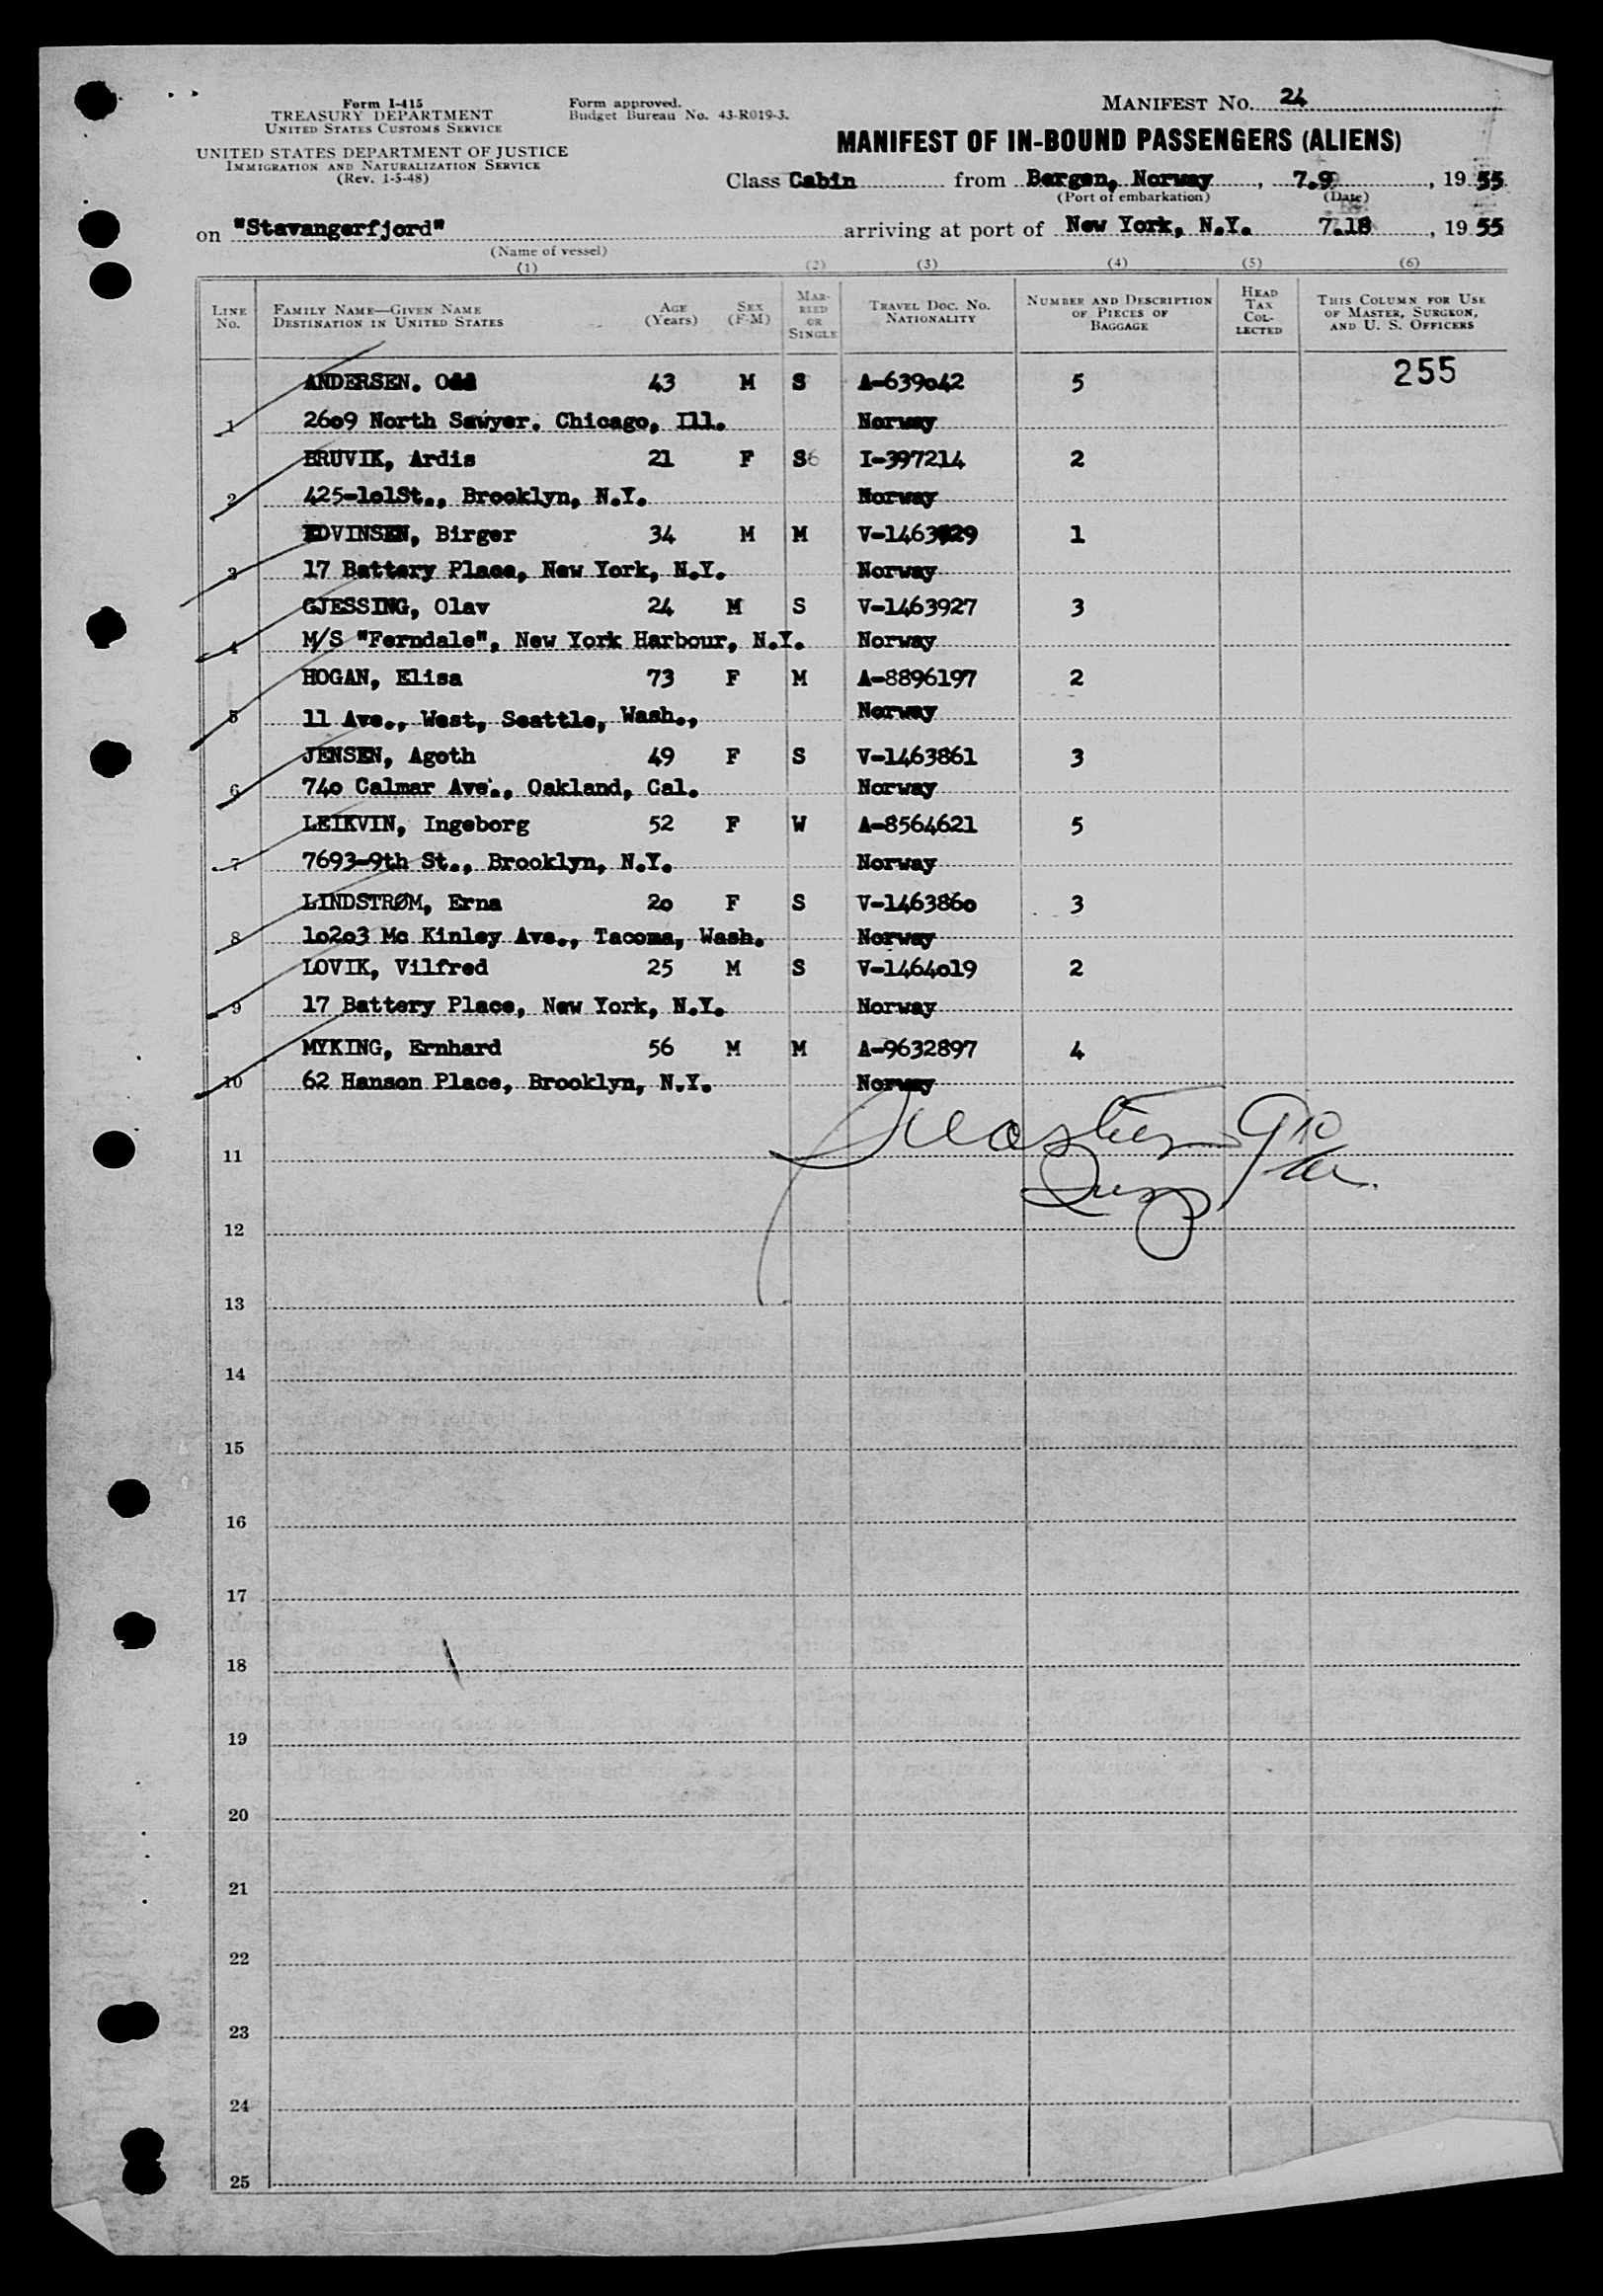 Form I-415
TREASURY DEPARTMENT
UNITED STATES CUSTOMS SERVICE
UNITED STATES DEPARTMENT OF JUSTICE
IMMIGRATION AND NATURALIZATION SERVICE
(Rev. 1-5-48)
Form approved.
Budget Bureau No. 43-R019-3.
MANIFEST NO. 24
MANIFEST OF IN-BOUND PASSENGERS (ALIENS)
Class Cabin from Bergen, Norway, 7.9, 1955
(Port of embarkation) (Date)
on "Stavangerfjord" arriving at port of New York, N.Y. 7.18, 1955
(Name of vessel)
(1) (2) (3) (4) (5) (6)
LINE NO. FAMILY NAME—GIVEN NAME DESTINATION IN UNITED STATES AGE (Years) SEX (F-M) MARRIED OR SINGLE TRAVEL DOC. NO. NATIONALITY NUMBER AND DESCRIPTION OF PIECES OF BAGGAGE HEAD TAX COLLECTED THIS COLUMN FOR USE OF MASTER, SURGEON, AND U. S. OFFICERS
ANDERSEN. Odd 43 M S A-639o42 5 255
1 26o9 North Sawyer. Chicago, Ill. Norway
BRUVIK, Ardis 21 F S I-397214 2
2 425-lolSt., Brooklyn, N.Y. Norway
EDVINSEN, Birger 34 M M 1
3 17 Battery Place, New York, N.Y. Norway
GJESSING, Olav 24 M S V-1463927 3
4 M/S "Ferndale", New York Harbour, N.Y. Norway
HOGAN, Elisa 73 F M A-8896197 2
5 11 Ave., West, Seattle, Wash., Norway
JENSEN, Agoth 49 F S V-1463861 3
6 74o Calmar Ave., Oakland, Cal. Norway
LEIKVIN, Ingeborg 52 F W A-8564621 5
7 7693-9th St., Brooklyn, N.Y. Norway
LINDSTRØM, Erna 2o F S V-146386o 3
8 1o2o3 Mc Kinley Ave., Tacoma, Wash. Norway
LOVIK, Vilfred 25 M S V-1464o19 2
9 17 Battery Place, New York, N.Y. Norway
MYKING, Ernhard 56 M M A-9632897 4
10 62 Hanson Place, Brooklyn, N.Y. Norway
11
12
13
14
15
16
17
18
19
20
21
22
23
24
25